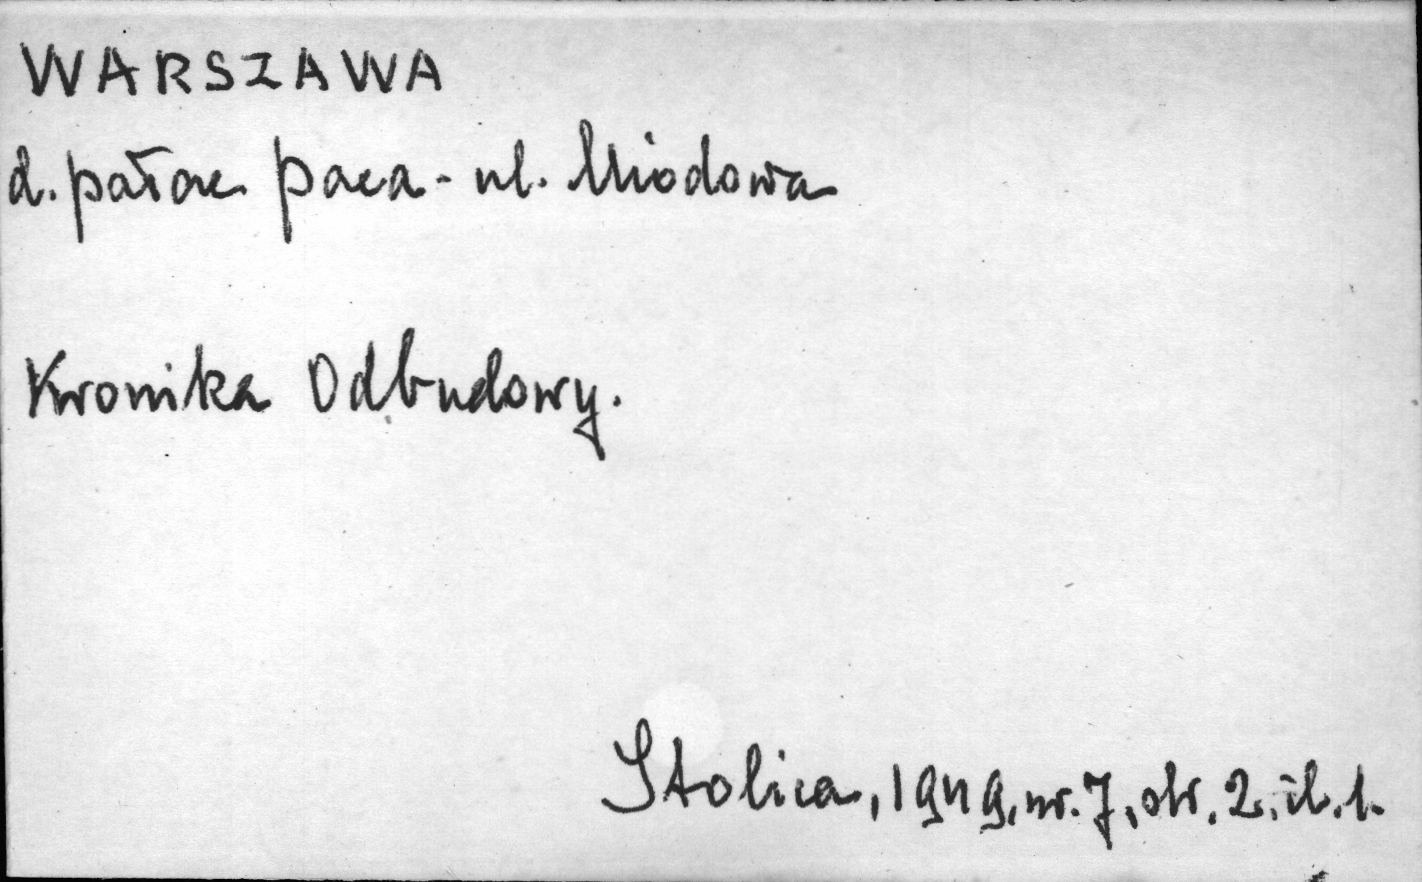 WARSZAWA
d. pałac Paca - ul. Miodowa
Kronika Odbudowy.
Stolica, 1949, nr. 7, str. 2, il. 1.